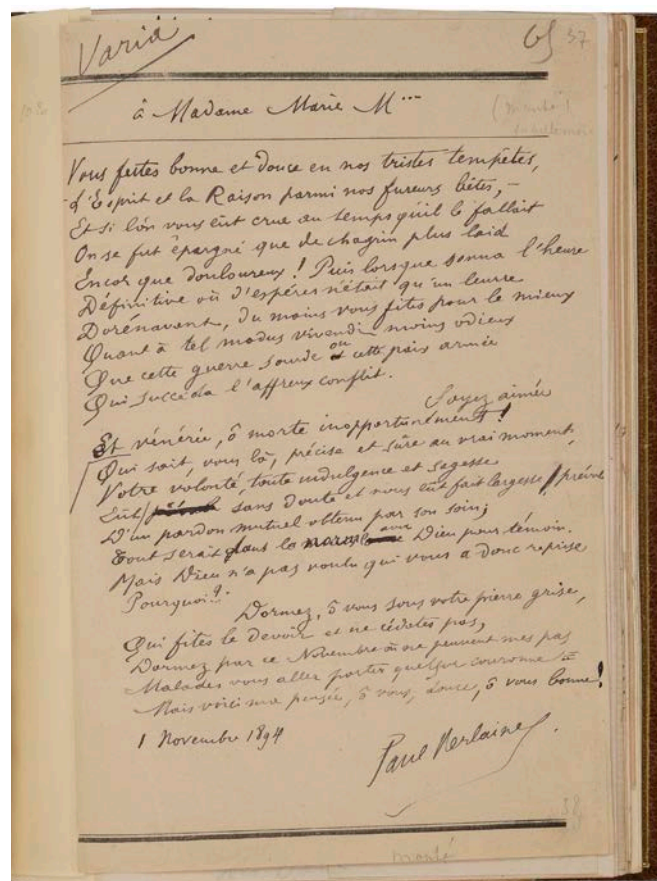 Varia
65 37
à Madame Marie M...
Vous fûtes bonne et douce en nos tristes tempêtes,
L'Esprit et la Raison parmi nos fureurs bêtes, –
Et si l'on vous eût crue au temps qu'il le fallait
On se fut épargné que de chagrin plus laid
Encor que douloureux ! Puis lorsque sonna l'heure
Définitive où d'espérer n'était qu'un leurre
Dorénavant, du moins vous fîtes pour le mieux
Quant à tel modus vivendi moins odieux
Que cette guerre sourde ou cette paix armée
Qui succéda l'affreux conflit.
Soyez aimée
Et vénérée, ô morte inopportunément !
Qui sait, vous là, précise et sûre au vrai moment,
Votre volonté, toute indulgence et sagesse
Eût sans doute et nous eût fait largesse // prévalu
D'un pardon mutuel obtenu par son soin ;
Tout serait dans la avec Dieu pour témoin.
Mais Dieu n'a pas voulu qui vous a donc reprise
Pourquoi ?!
Dormez, ô vous sous votre pierre grise,
Qui fîtes le Devoir et ne cédâtes pas,
Dormez par ce Novembre où ne peuvent mes pas
Malades vous aller porter quelque couronne
Mais voici ma pensée, ô vous, douce, ô vous bonne !
1 Novembre 1894
Paul Verlaine.
38
monté